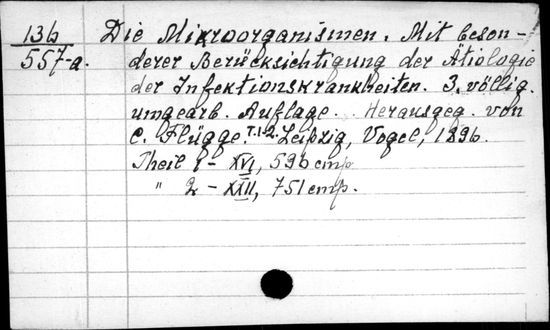 136
557-а.
Die Mikroorganismen. Mit beson-
derer Berücksichtigung der Ätiologie
der Infektionskrankheiten. 3. völlig.
umgearb. Auflage. Herausgeg. von
C. Flügge. T.1-2. Leipzig, Vogel, 1896.
Theil 1 - XVI, 596 стр.
" 2 - XXII, 751 стр.